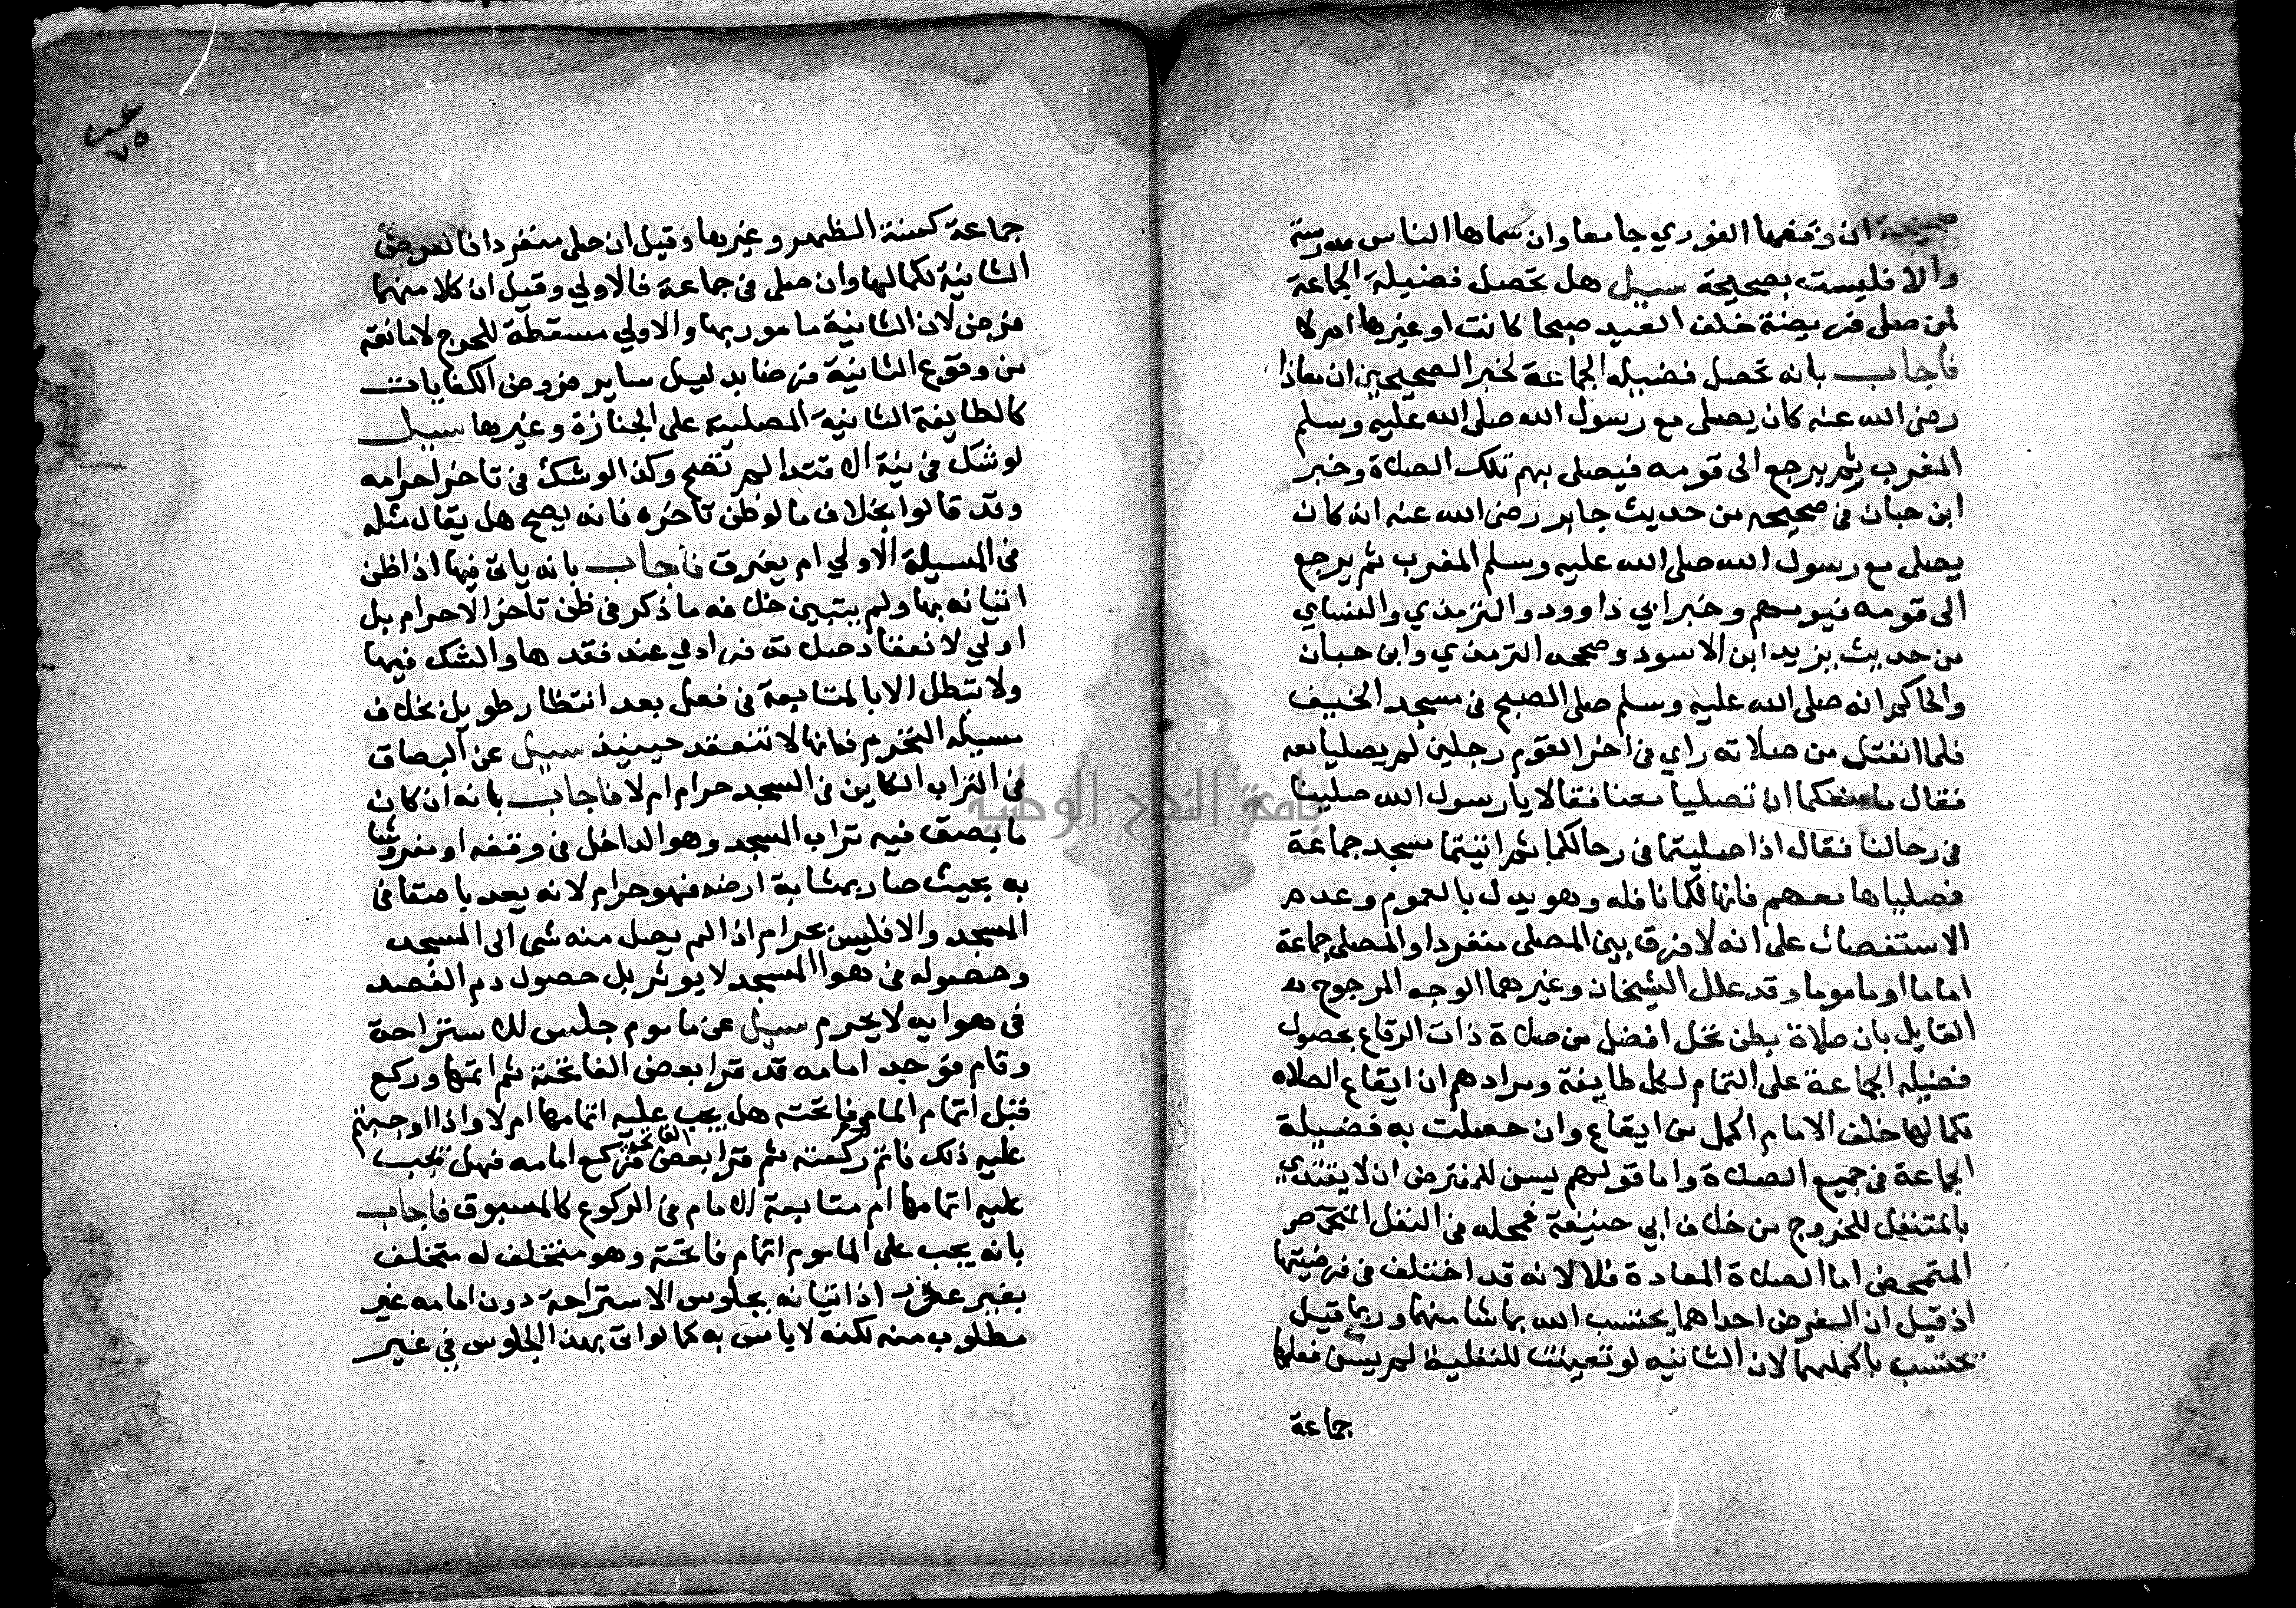 صحيحة ان وقفها الغوري جامعا وان سماها الناس مدرسة
والا فليست بصحيحة سيل هل تحصل فضيلة الجماعة
لمن صلى فريضة خلف العيد صبحا كانت او غيرها ام لا
فاجاب بانه تحصل فضيله الجماعة لخبر الصحيحين ان معاذا
رضى الله عنه كان يصلى مع رسول الله صلى الله عليه وسلم
المغرب ثم يرجع الى قومه فيصلى بهم تلك الصلاة وخبر
ابن حبان فى صحيحه من حديث جابر رضى الله عنه انه كان
يصلى مع رسول الله صلى الله عليه وسلم المغرب ثم يرجع
الى قومه فيومهم وخبر ابي داوود والترمذي والنساي
من حديث يزيد ابن الاسود وصححه الترمذي وابن حبان
والحاكم انه صلى الله عليه وسلم صلى الصبح فى مسجد الخيف
فلما انفتل من صلاته راي فى اخر القوم رجلين لم يصليا معه
فقال ما منعكما ان تصليا معنا فقالا يا رسول الله صلينا
فى رحالنا فقال اذا صليتما فى رحالكما ثم اتيتما مسجد جماعة
فصلياها معهم فانها لكما نافله وهو يدل بالعموم وعدم
الاستفصال على انه لا فرق بين المصلى منفردا والمصلى جماعة
اماما او ماموما وقد علل الشيخان وغيرهما الوجه المرجوح
القايل بان صلاة بطن نخل افضل من صلاة ذات الرقاع بحصول
فضيله الجماعة على التمام لكل طايفة ومرادهم ان ايقاع الصلاه
بكمالها خلف الامام اكمل من ايقاع وان حصلت به فضيلة
الجماعة فى جميع الصلاة واما قولهم يسن للمفترض ان لا يقتدي
بالمتنفل للخروج من خلاف ابي حنيفة فمحله فى النفل
المتمحض اما الصلاة المعادة فلا لانه قد اختلف فى فرضيتها
اذ قيل ان الفرض احداهما يحتسب الله بما شا منهما وربما قيل
يحتسب باكملهما لان الثانيه لو تعينت للنفلية لم يسن فعلها
جماعة
عس
٧٥
جماعة كسنة الظهر وغيرها وقيل ان صلى منفردا فالفرض
الثانية لكمالها وان صلى فى جماعة فالاولي وقيل ان كلا منهما
فرض لان الثانية مامور بها والاولي مسقطة للحرج لا مانعة
من وقوع الثانية فرضا بدليل ساير فروض الكفايات
كالطايفة الثانية المصلية على الجنازة وغيرها سيل
لو شك فى نية الاقتدا لم تصح وكذا لو شك فى تاخر احرامه
وقد قالوا بخلاف ما لو ظن تاخره فانه يصح هل يقال مثله
فى المسيلة الاولي ام يفرق فاجاب بانه ياتى فيها اذا ظن
اتيانه بها ولم يتبين خلافه ما ذكر فى ظن تاخر الاحرام بل
اولي لانعقاد صلاته فرادي عند فقدها والشك فيها
ولا تبطل الا بالمتابعة فى فعل بعد انتظار طويل بخلاف
مسيله التحرم فانها لا تنعقد حينيذ سيل عن البصاق
فى التراب الكاين فى المسجد حرام ام لا فاجاب بانه ان كان
ما يصق فيه تراب المسجد وهو الداخل فى وقفه او مفروشا
به بحيث صار بمثابة ارضه فهو حرام لانه يعد باصقا فى
المسجد والا فليس بحرام اذا لم يصل منه شى الى المسجد
وحصوله فى هوا المسجد لا يوثر بل حصول دم الفصد
فى هوايه لا يحرم سيل عن ماموم جلس للاستراحة
وقام فوجد امامه قد قرا بعض الفاتحة ثم اتمها وركع
قبل اتمام المام فاتحته هل يجب عليه اتمامها ام لا واذا اوجبتم
عليه ذلك فاتم ركعته ثم قرا بعض الفاتحة فركع امامه فهل يجب
عليه اتمامها ام متابعة الامام فى الركوع كالمسبوق فاجاب
بانه يجب على الماموم اتمام فاتحته وهو متخلف له متخلف
بغير عذر اذ اتيانه بجلوس الاستراحة دون امامه غير
مطلوب منه لكنه لا باس به كما لو اتى بهذا الجلوس في غير
جامعة النجاح الوطنية